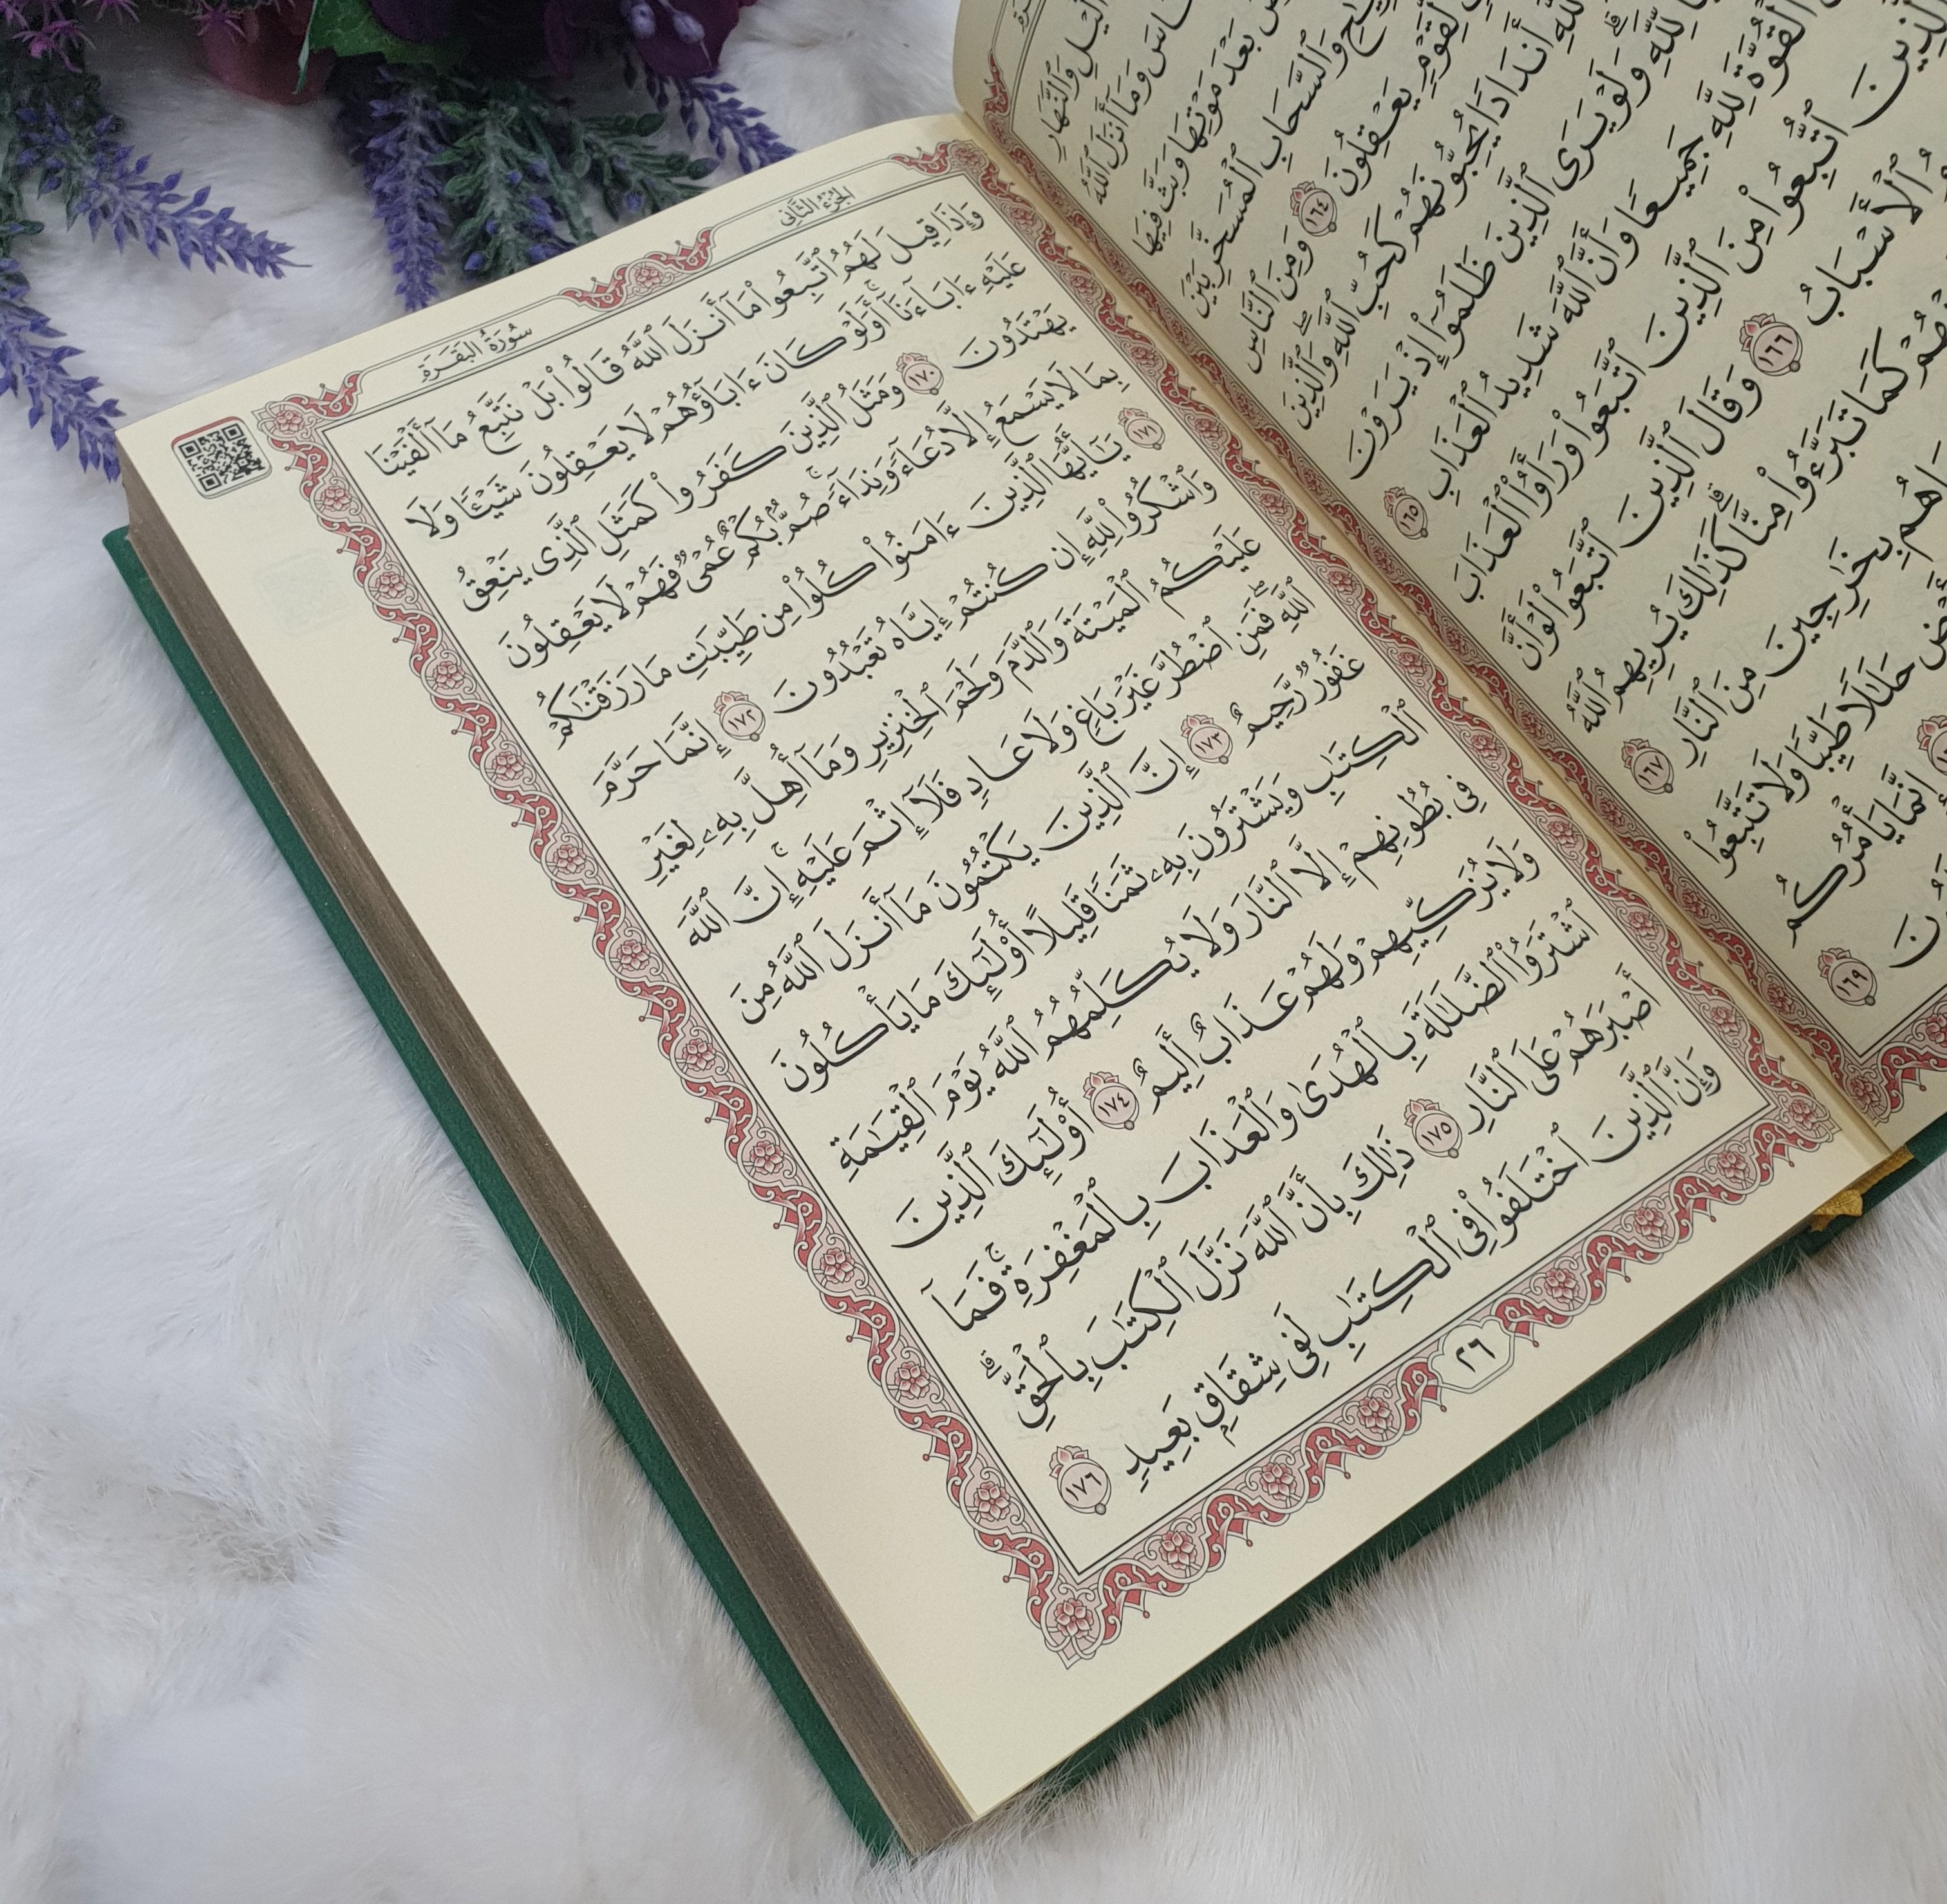 وَٱلنَّهَارِ
وَمَآ أَنزَلَ ٱللَّهُ
بَعۡدَ مَوۡتِهَا وَبَثَّ فِيهَا
وَٱلسَّحَابِ ٱلۡمُسَخَّرِ بَيۡنَ
لِّقَوۡمٖ يَعۡقِلُونَ ١٦٤ وَمِنَ ٱلنَّاسِ
أَندَادٗا يُحِبُّونَهُمۡ كَحُبِّ ٱللَّهِۖ وَٱلَّذِينَ
لِّلَّهِۗ وَلَوۡ يَرَى ٱلَّذِينَ ظَلَمُوٓاْ إِذۡ يَرَوۡنَ
ٱلۡقُوَّةَ لِلَّهِ جَمِيعٗا وَأَنَّ ٱللَّهَ شَدِيدُ ٱلۡعَذَابِ ١٦٥
ٱلَّذِينَ ٱتُّبِعُواْ مِنَ ٱلَّذِينَ ٱتَّبَعُواْ وَرَأَوُاْ ٱلۡعَذَابَ
ٱلۡأَسۡبَابُ ١٦٦ وَقَالَ ٱلَّذِينَ ٱتَّبَعُواْ لَوۡ أَنَّ
كَمَا تَبَرَّءُواْ مِنَّاۗ كَذَٰلِكَ يُرِيهِمُ ٱللَّهُ
بِخَٰرِجِينَ مِنَ ٱلنَّارِ ١٦٧
حَلَٰلٗا طَيِّبٗا وَلَا تَتَّبِعُواْ
إِنَّمَا يَأۡمُرُكُم
١٦٩
الجُزْءُ الثَّانِي
سُورَةُ البَقَرَةِ
وَإِذَا قِيلَ لَهُمُ ٱتَّبِعُواْ مَآ أَنزَلَ ٱللَّهُ قَالُواْ بَلۡ نَتَّبِعُ مَآ أَلۡفَيۡنَا
عَلَيۡهِ ءَابَآءَنَآۚ أَوَلَوۡ كَانَ ءَابَآؤُهُمۡ لَا يَعۡقِلُونَ شَيۡـٔٗا وَلَا
يَهۡتَدُونَ ١٧٠ وَمَثَلُ ٱلَّذِينَ كَفَرُواْ كَمَثَلِ ٱلَّذِي يَنۡعِقُ
بِمَا لَا يَسۡمَعُ إِلَّا دُعَآءٗ وَنِدَآءٗۚ صُمُّۢ بُكۡمٌ عُمۡيٞ فَهُمۡ لَا يَعۡقِلُونَ
١٧١ يَٰٓأَيُّهَا ٱلَّذِينَ ءَامَنُواْ كُلُواْ مِن طَيِّبَٰتِ مَا رَزَقۡنَٰكُمۡ
وَٱشۡكُرُواْ لِلَّهِ إِن كُنتُمۡ إِيَّاهُ تَعۡبُدُونَ ١٧٢ إِنَّمَا حَرَّمَ
عَلَيۡكُمُ ٱلۡمَيۡتَةَ وَٱلدَّمَ وَلَحۡمَ ٱلۡخِنزِيرِ وَمَآ أُهِلَّ بِهِۦ لِغَيۡرِ
ٱللَّهِۖ فَمَنِ ٱضۡطُرَّ غَيۡرَ بَاغٖ وَلَا عَادٖ فَلَآ إِثۡمَ عَلَيۡهِۚ إِنَّ ٱللَّهَ
غَفُورٞ رَّحِيمٌ ١٧٣ إِنَّ ٱلَّذِينَ يَكۡتُمُونَ مَآ أَنزَلَ ٱللَّهُ مِنَ
ٱلۡكِتَٰبِ وَيَشۡتَرُونَ بِهِۦ ثَمَنٗا قَلِيلًا أُوْلَٰٓئِكَ مَا يَأۡكُلُونَ
فِي بُطُونِهِمۡ إِلَّا ٱلنَّارَ وَلَا يُكَلِّمُهُمُ ٱللَّهُ يَوۡمَ ٱلۡقِيَٰمَةِ
وَلَا يُزَكِّيهِمۡ وَلَهُمۡ عَذَابٌ أَلِيمٌ ١٧٤ أُوْلَٰٓئِكَ ٱلَّذِينَ
ٱشۡتَرَوُاْ ٱلضَّلَٰلَةَ بِٱلۡهُدَىٰ وَٱلۡعَذَابَ بِٱلۡمَغۡفِرَةِۚ فَمَآ
أَصۡبَرَهُمۡ عَلَى ٱلنَّارِ ١٧٥ ذَٰلِكَ بِأَنَّ ٱللَّهَ نَزَّلَ ٱلۡكِتَٰبَ بِٱلۡحَقِّۗ
وَإِنَّ ٱلَّذِينَ ٱخۡتَلَفُواْ فِي ٱلۡكِتَٰبِ لَفِي شِقَاقِۭ بَعِيدٖ ١٧٦
٢٦